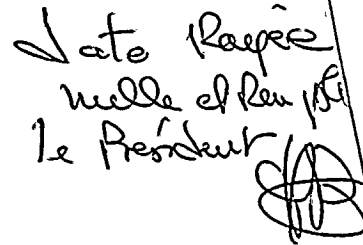 date Rayée
nulle et Rempl
le Président